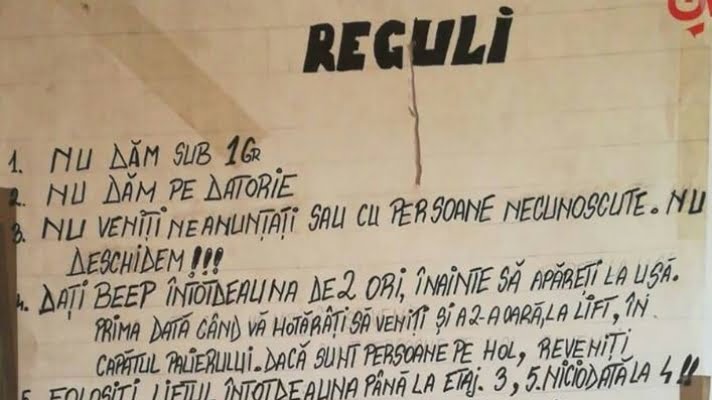 REGULI
1. NU DĂM SUB 1GR
2. NU DĂM PE DATORIE
3. NU VENIȚI NEANUNȚAȚI SAU CU PERSOANE NECUNOSCUTE. NU
DESCHIDEM!!!
4. DAȚI BEEP ÎNTOTDEAUNA DE 2 ORI, ÎNAINTE SĂ APĂREȚI LA UȘĂ.
PRIMA DATĂ CÂND VĂ HOTĂRÂȚI SĂ VENIȚI ȘI A 2-A OARĂ, LA LIFT, ÎN
CAPĂTUL PALIERULUI. DACĂ SUNT PERSOANE PE HOL, REVENIȚI
5. FOLOSIȚI LIFTUL ÎNTOTDEAUNA PÂNĂ LA ETAJ. 3, 5. NICIODATĂ LA 4!!